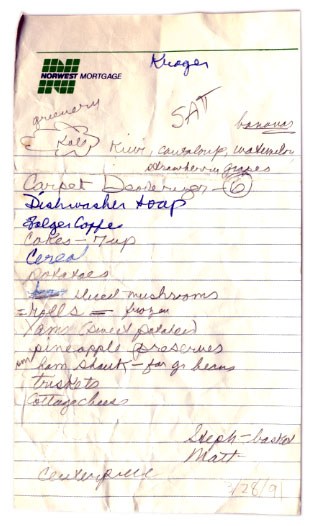 Kroger
NORWEST MORTGAGE
greenery
SAT
bananas
Kale
Kiwi, cantaloup, watermelon
strawberry grapes
Carpet Deoderizer - 6
Dishwasher soap
Folger Coffee
Cokes - 7up
Cereal
Potatoes
sliced mushrooms
= rolls = frozen
Yams (sweet potatoes)
pineapple preserves
ham shank - for gr beans
triskets
Cottage cheese
Steph - basket
Matt
Centerpiece
3/28/91